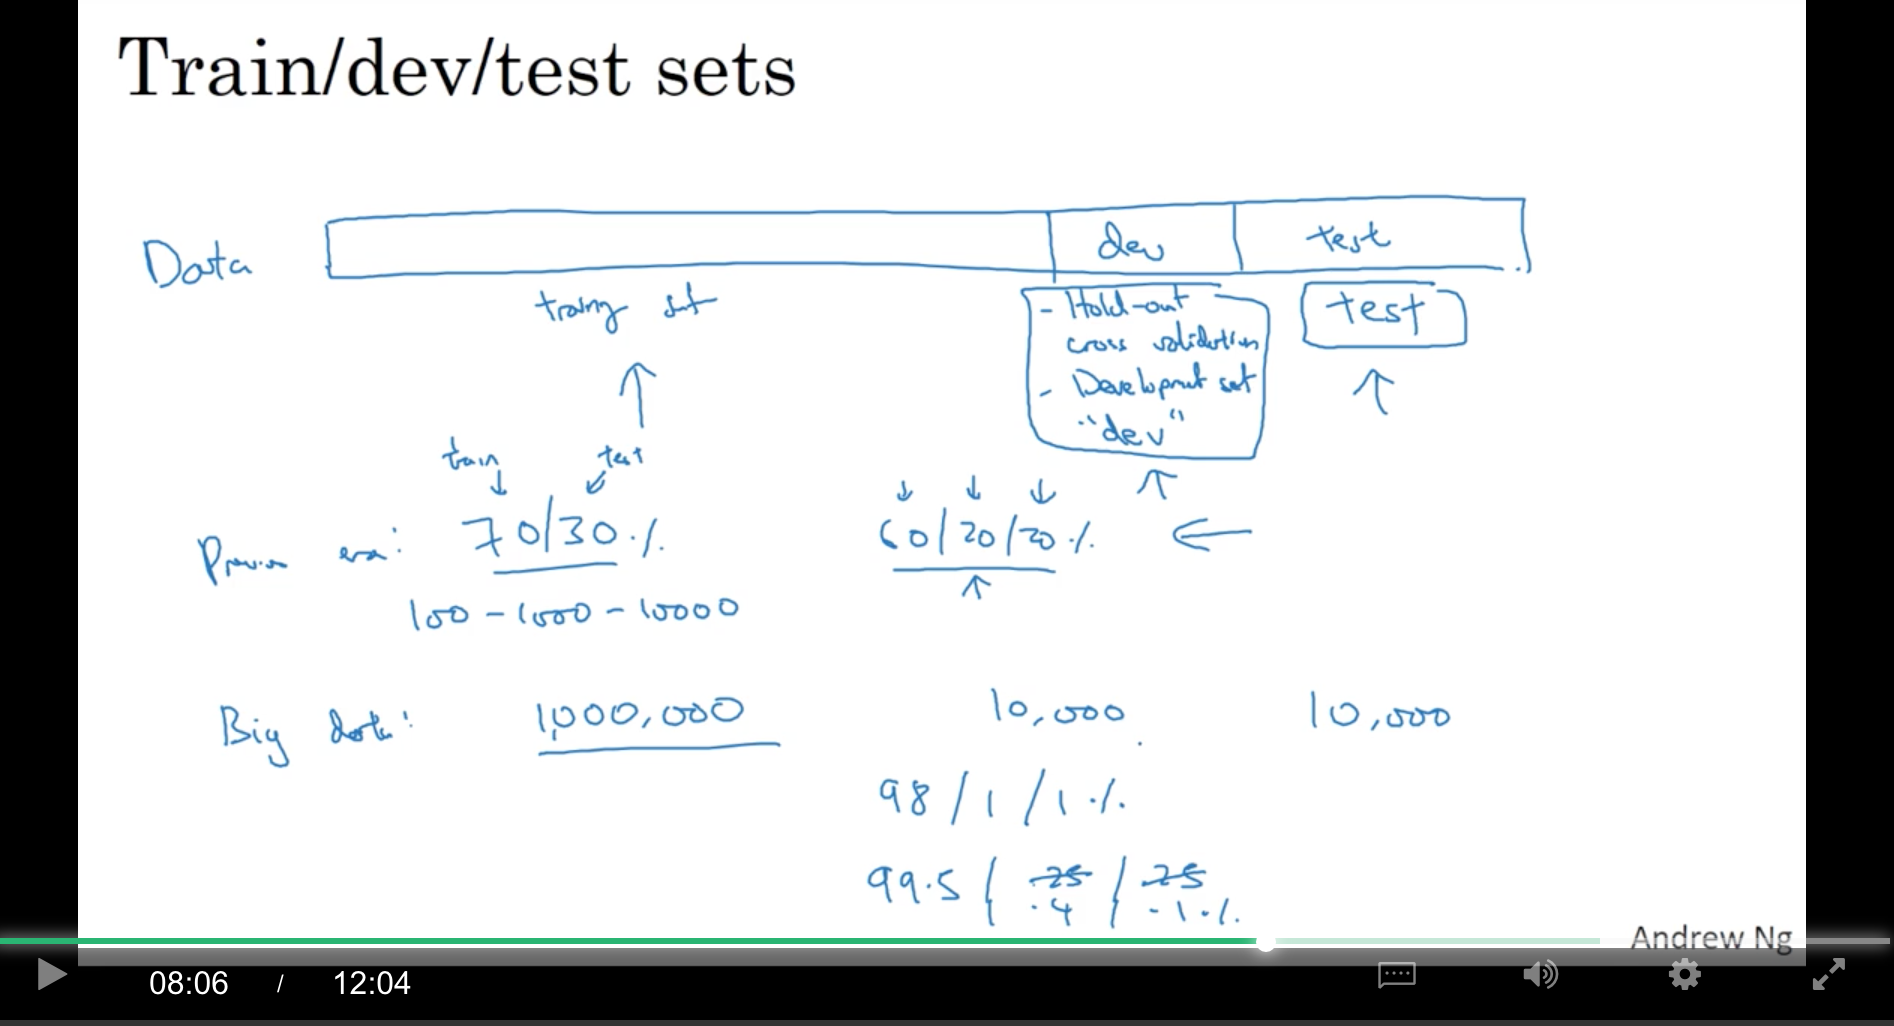 Train/dev/test sets
Data
dev
test
training set
- Hold-out
cross validation
- Development set
"dev"
test
train
test
Previous era:
70/30%
60/20/20%
100-1000-10000
Big data:
1,000,000
10,000
10,000
98/1/1%
99.5/.25/.25
.4 .1%
Andrew Ng
08:06 / 12:04